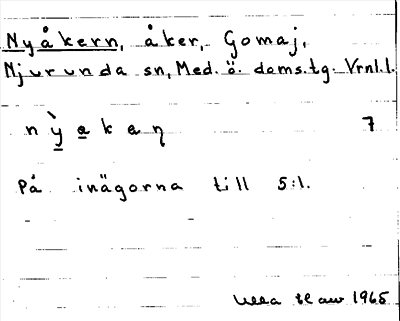 Nyåkern, åker, Gomaj,
Njurunda sn, Med. ö. doms.tg. Vrnl.l.
n ỳ̲ a̲ k a ŋ 7
På inägorna till 5:1.
1965